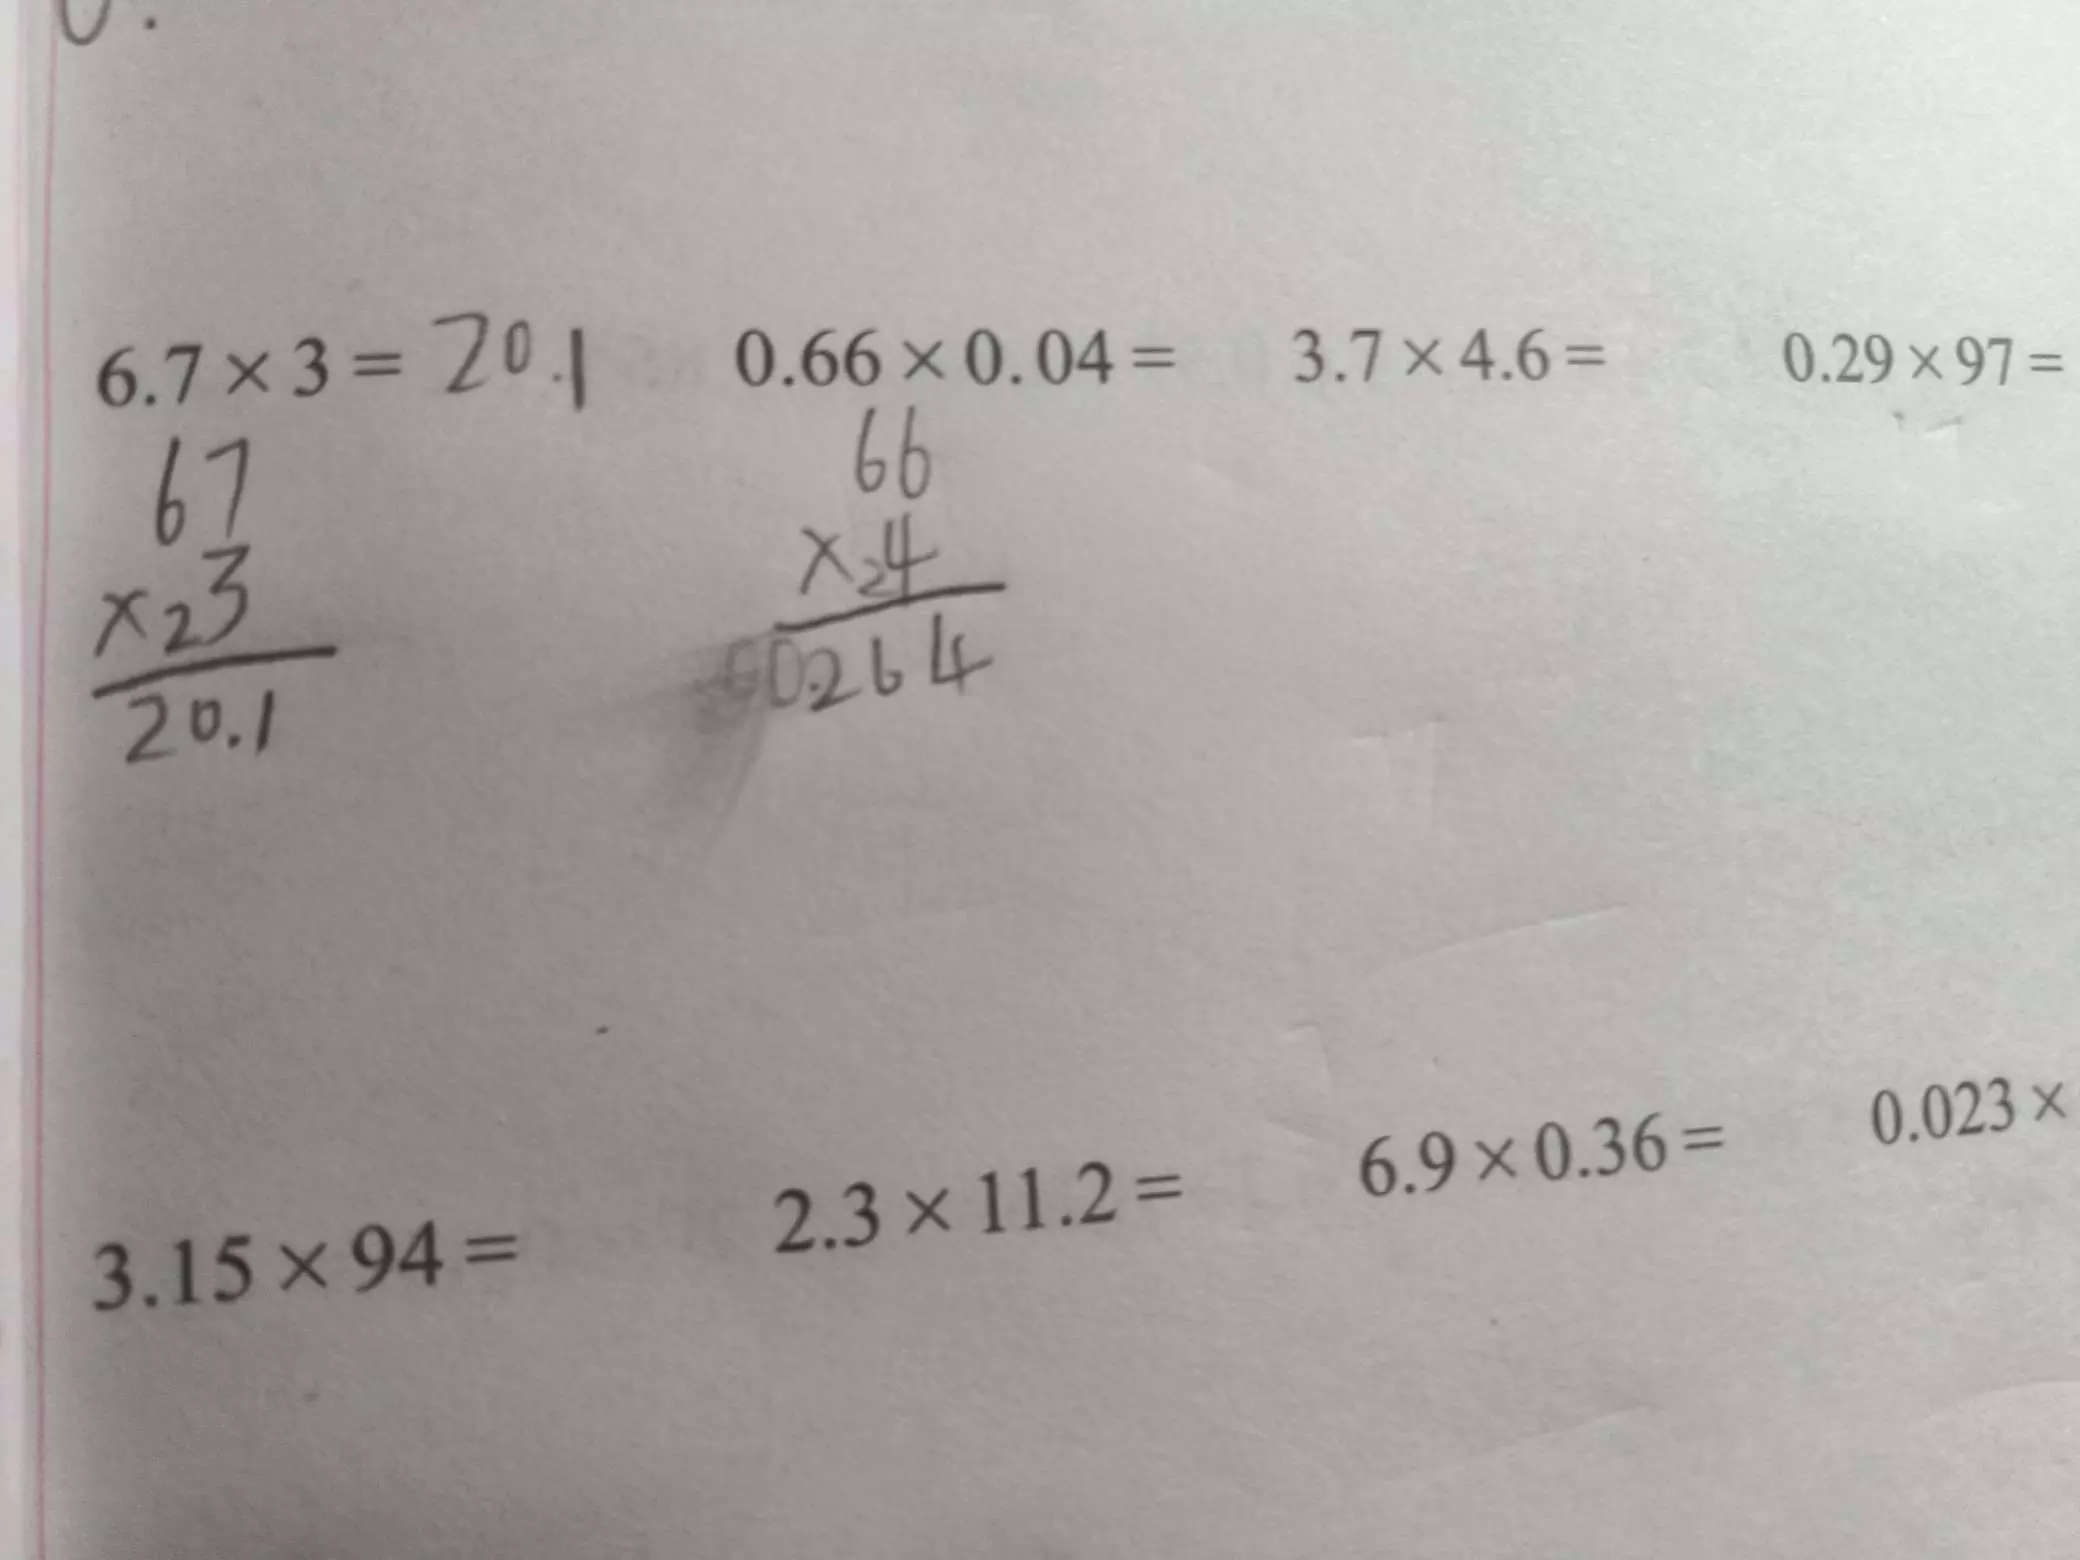 6.7 × 3 = 20.1 0.66 × 0.04 = 3.7 × 4.6 = 0.29 × 97 =
67 66
×23 ×24
20.1 0.264
3.15 × 94 = 2.3 × 11.2 = 6.9 × 0.36 = 0.023 ×